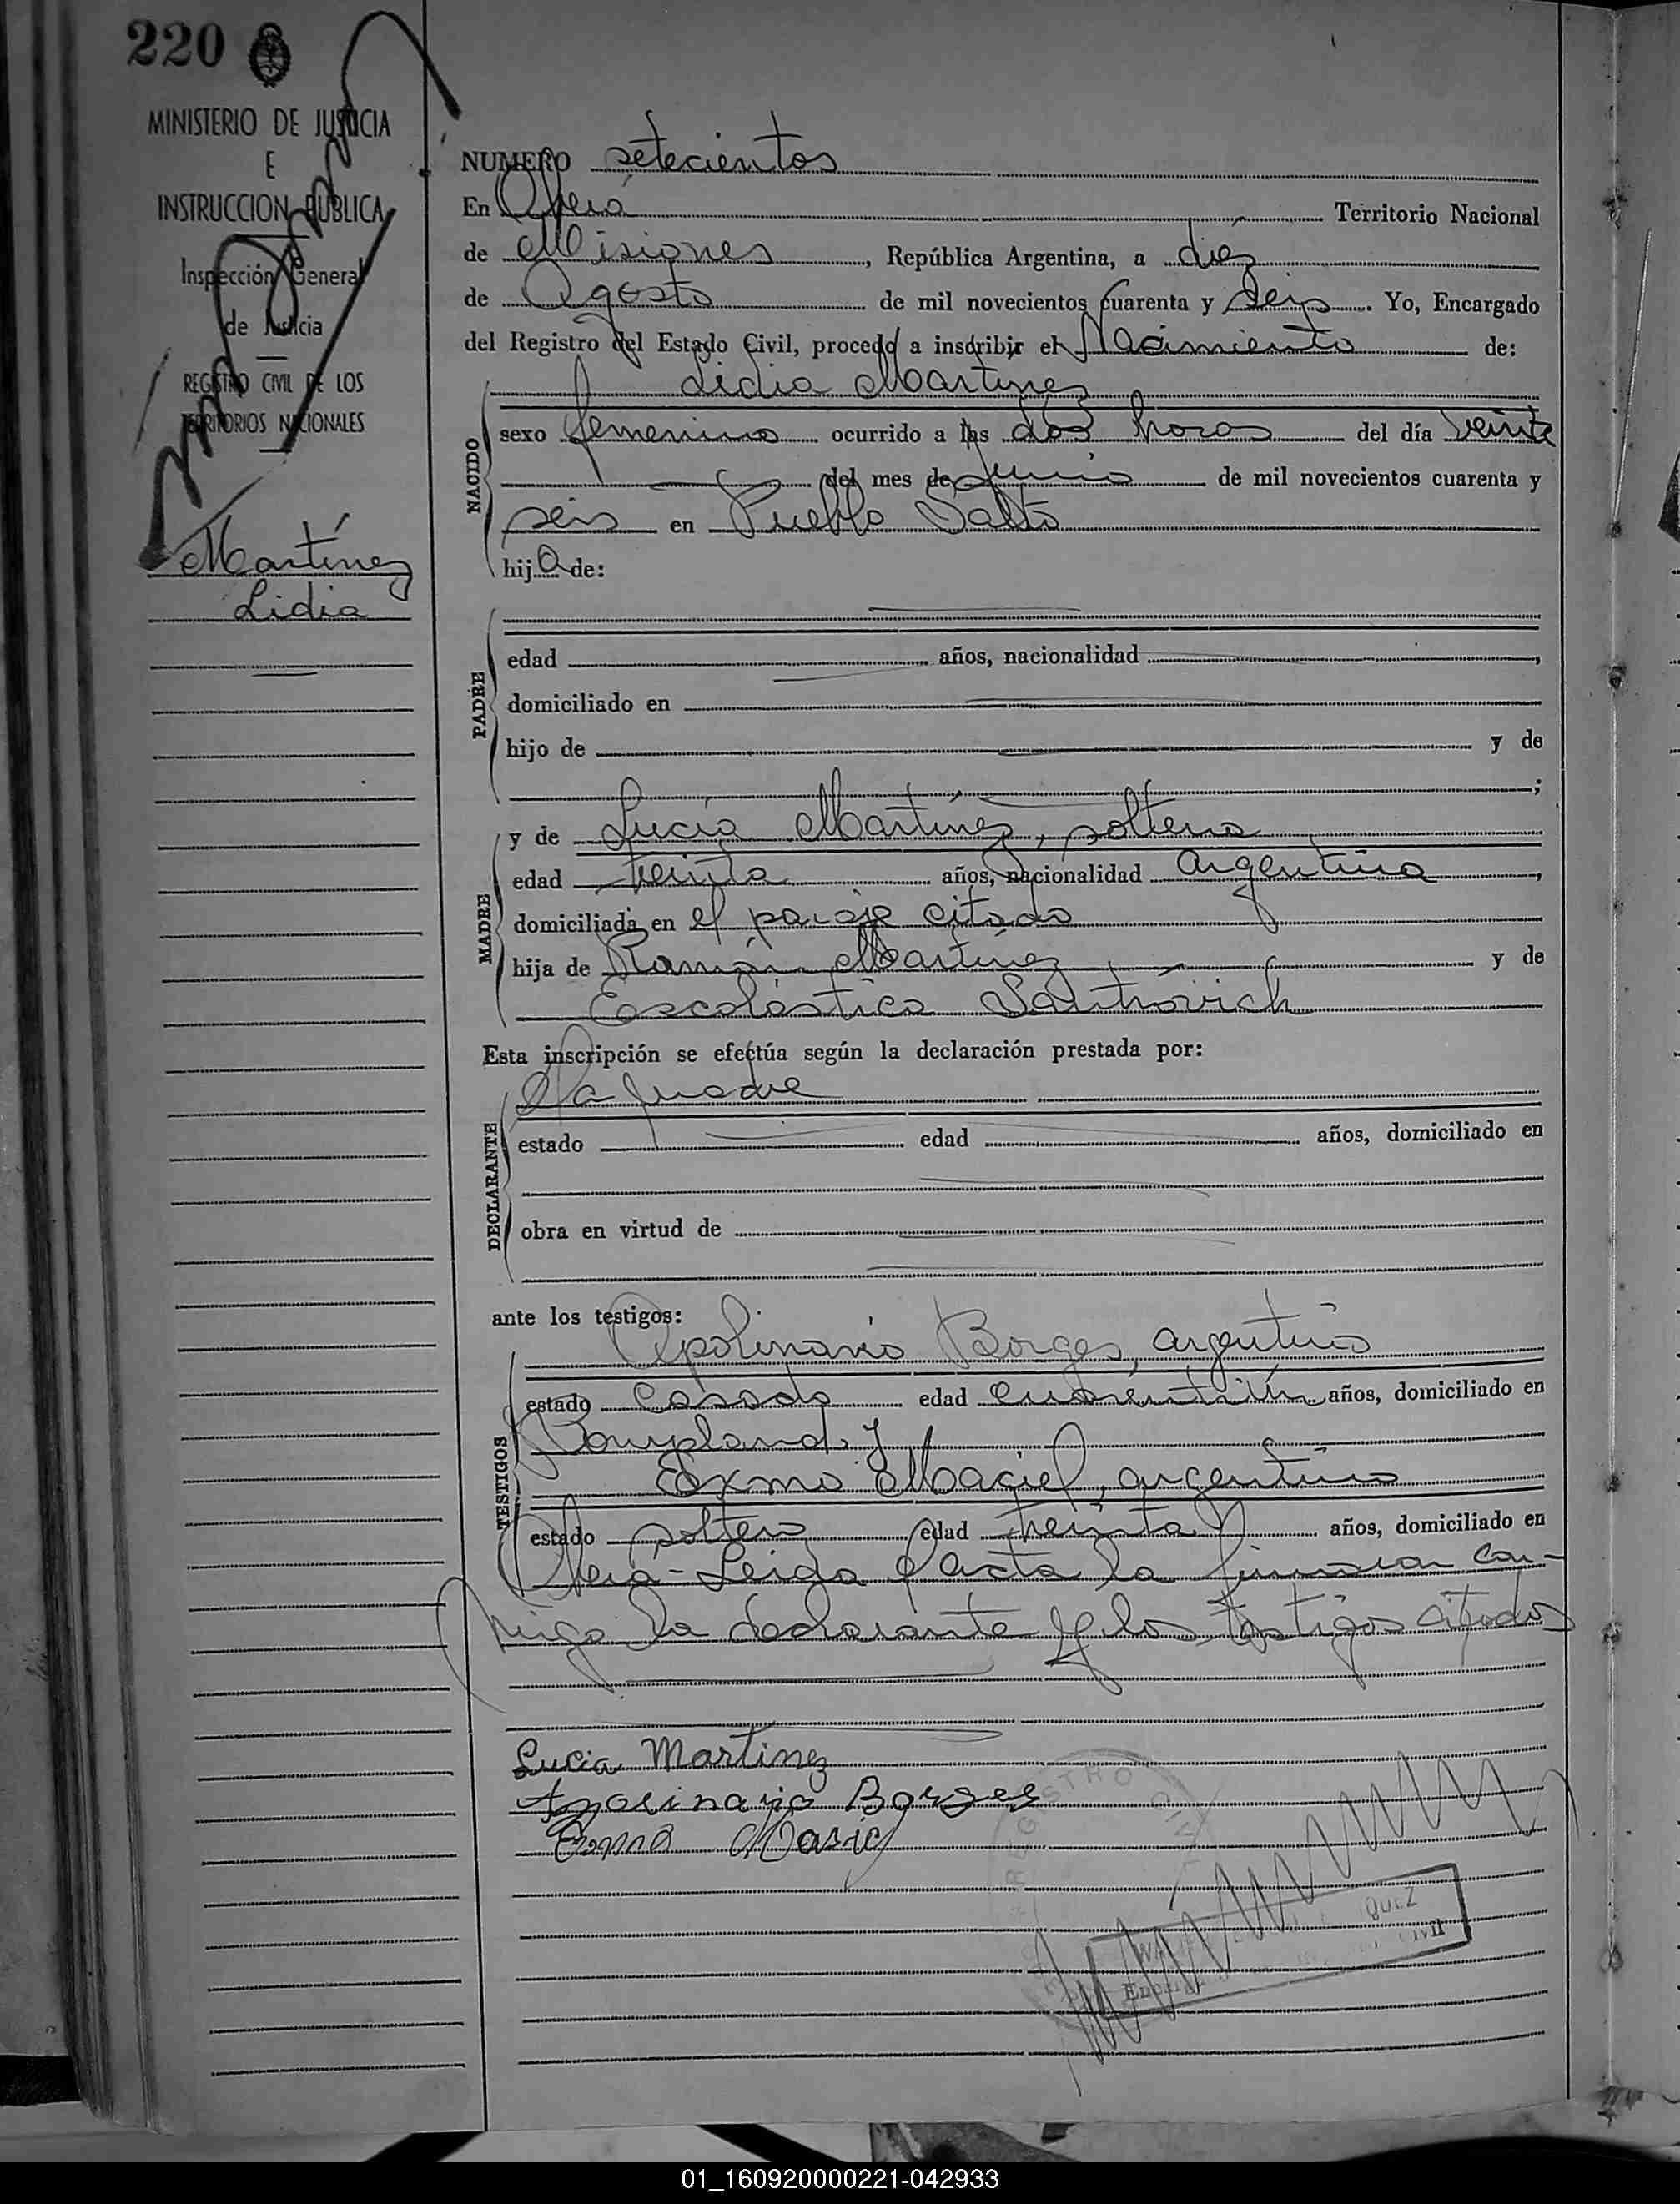 220
MINISTERIO DE JUSTICIA
E
INSTRUCCION PUBLICA
Inspección General
de Justicia
REGISTRO CIVIL DE LOS
TERRITORIOS NACIONALES
Martínez
Lidia
NUMERO setecientos
En Oberá Territorio Nacional
de Misiones, República Argentina, a diez
de Agosto de mil novecientos cuarenta y seis. Yo, Encargado
del Registro del Estado Civil, procedo a inscribir el Nacimiento de:
Lidia Martinez
NACIDO
sexo femenino ocurrido a las dos horas del día veinte
del mes de junio de mil novecientos cuarenta y
seis en Pueblo Salto
hija de:
PADRE
edad años, nacionalidad ,
domiciliado en
hijo de y de
;
MADRE
y de Lucía Martínez, soltera
edad treinta años, nacionalidad argentina,
domiciliada en el paraje citado
hija de Ramón Martínez y de
Escolástica
Esta inscripción se efectúa según la declaración prestada por:
DECLARANTE
la madre
estado edad años, domiciliado en
obra en virtud de
ante los testigos:
TESTIGOS
Apolinario Borges, argentino
estado casado edad cuarentiún años, domiciliado en
Bompland y
Exmo Maciel, argentino
estado soltero edad treinta años, domiciliado en
Oberá - Leida el acta la firmaron con-
migo la declarante y los testigos citados
Lucia Martinez
Apolinario Borges
REGISTRO CIVIL
01_160920000221-042933